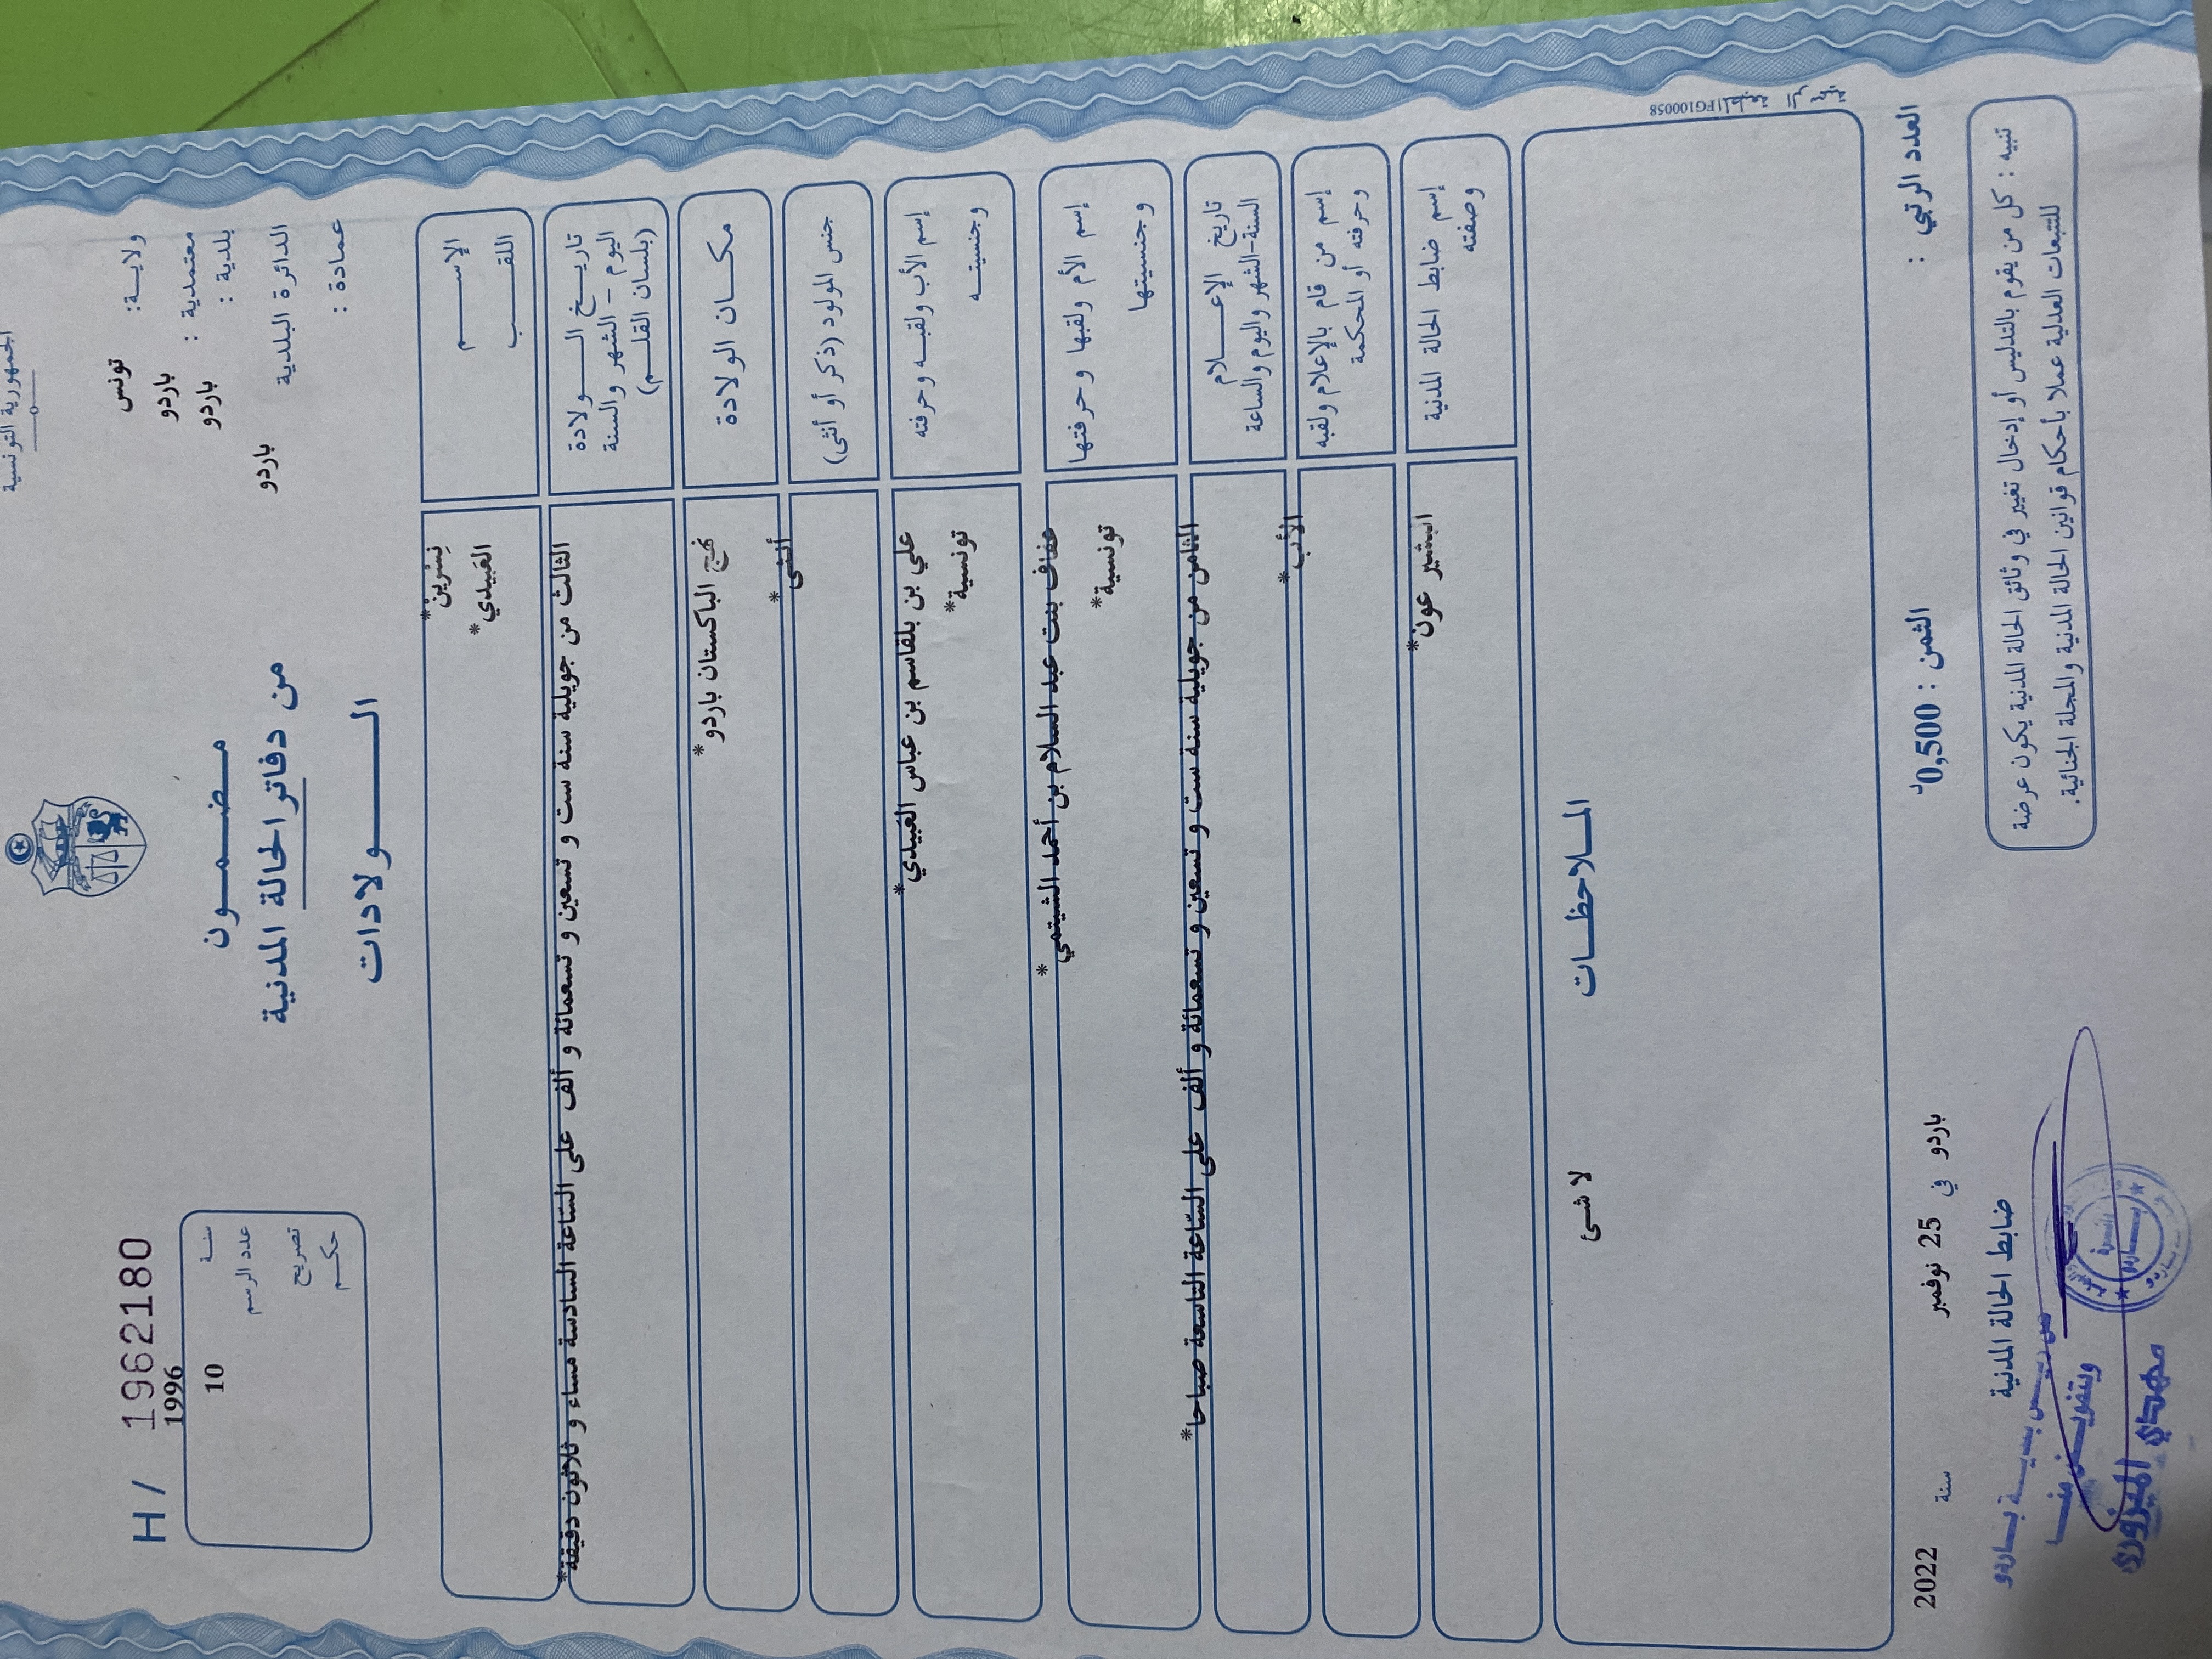 الجمهورية التونسية
ولايـة: تونس
معتمدية : باردو
بلدية : باردو
الدائرة البلدية باردو
عمادة :
مضـمـون
من دفاتر الحالة المدنية
الـولادات
H / 1962180
1996
سنـة
10
عدد الرسم
تصريح
حكـم
الإســـم
نِسْرِينْ*
اللقــب
العَبيدي*
تاريـخ الــولادة
اليوم - الشهر والسنة
(بلسان القلـم)
الثالث من جويلية سنة ست و تسعين و تسعمائة و ألف على السّاعة السادسة مساء و ثلاثون دقيقة*
مكـان الولادة
نهج الباكستان باردو*
جنس المولود (ذكر أو أنثى)
أنثى*
إسم الأب ولقبـه وحرفته
علي بن بلقاسم بن عباس العَبيدي*
وجنسيتـه
تونسية*
إسم الأم ولقبها وحرفتها
عفاف بنت عبد السلام بن أحمد الشيتمي*
وجنسيتها
تونسية*
تاريخ الإعــلام
السنة-الشهر واليوم والساعة
الثامن من جويلية سنة ست و تسعين و تسعمائة و ألف على السّاعة التاسعة صباحا*
إسم من قام بالإعلام ولقبه
وحرفته أو المحكمة
الأب*
إسم ضابط الحالة المدنية
وصفته
البشير عون*
المـلاحظـات
لا شئ
FG100058
العدد الرتبي :
الثمن : 0,500د
باردو في 25 نوفمبر سنة 2022
تنبيه : كل من يقوم بالتدليس أو إدخال تغيير في وثائق الحالة المدنية يكون عرضة
للتتبعات العدلية عملا بأحكام قوانين الحالة المدنية والمجلة الجنائية.
ضابط الحالة المدنية
وبتفويـض منـه